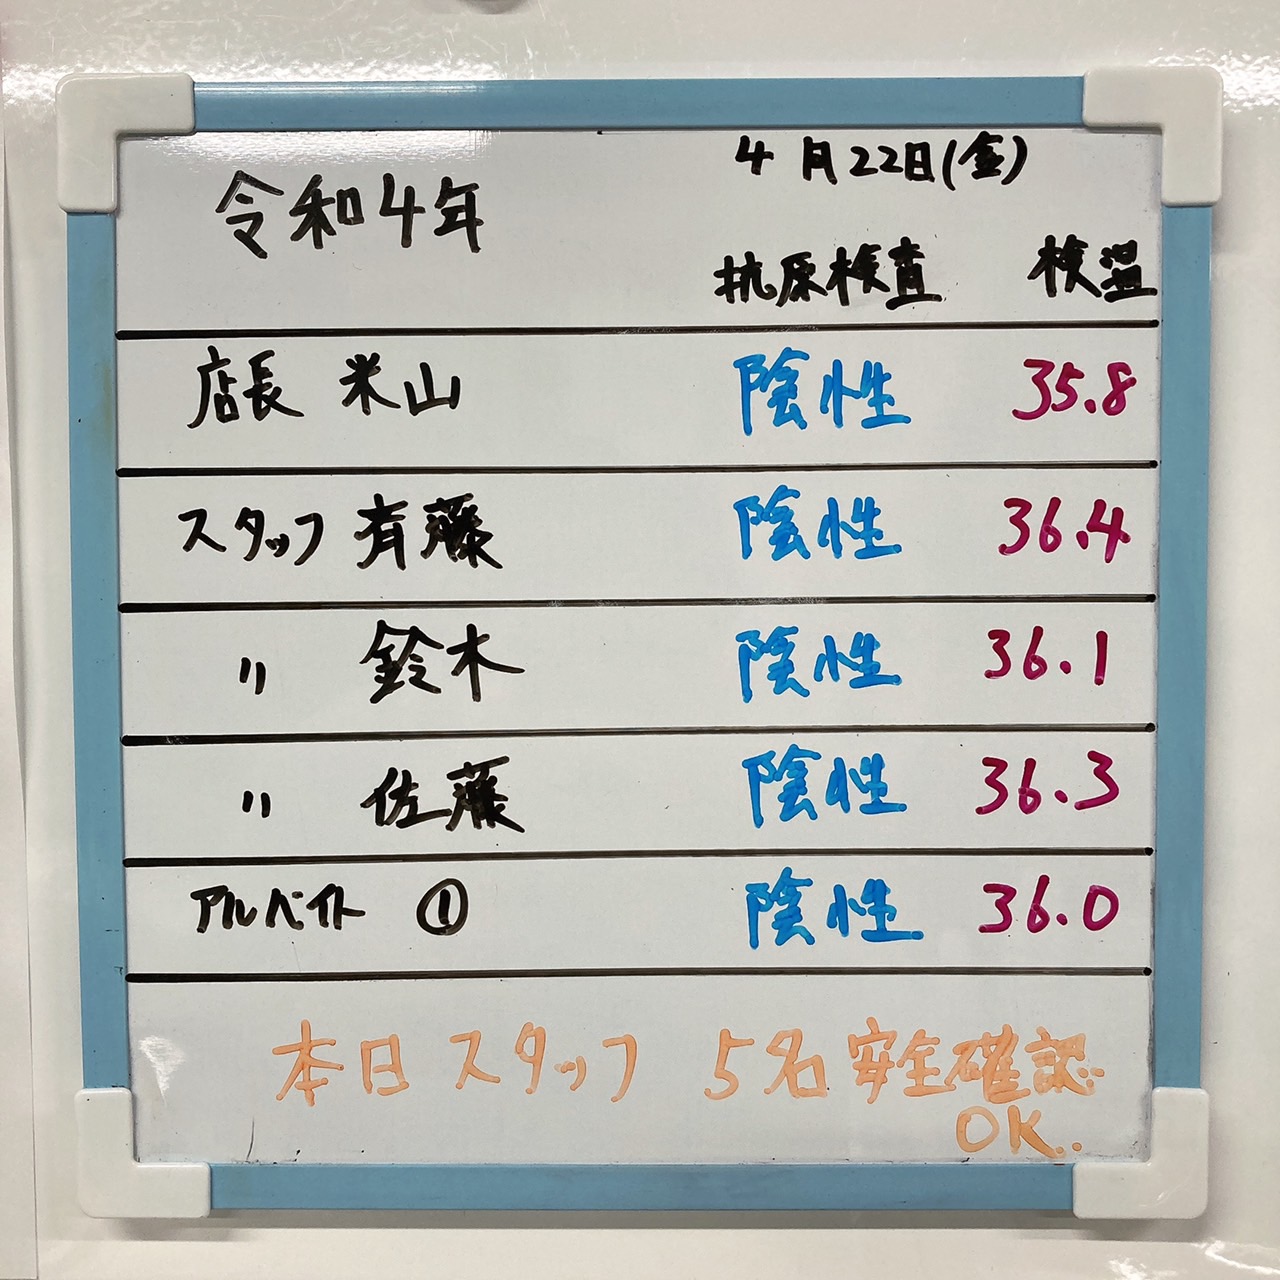 令和4年
4月22日(金)
抗原検査 検温
店長 米山 陰性 35.8
スタッフ 斉藤 陰性 36.4
〃 鈴木 陰性 36.1
〃 佐藤 陰性 36.3
アルバイト ① 陰性 36.0
本日スタッフ 5名安全確認
OK..